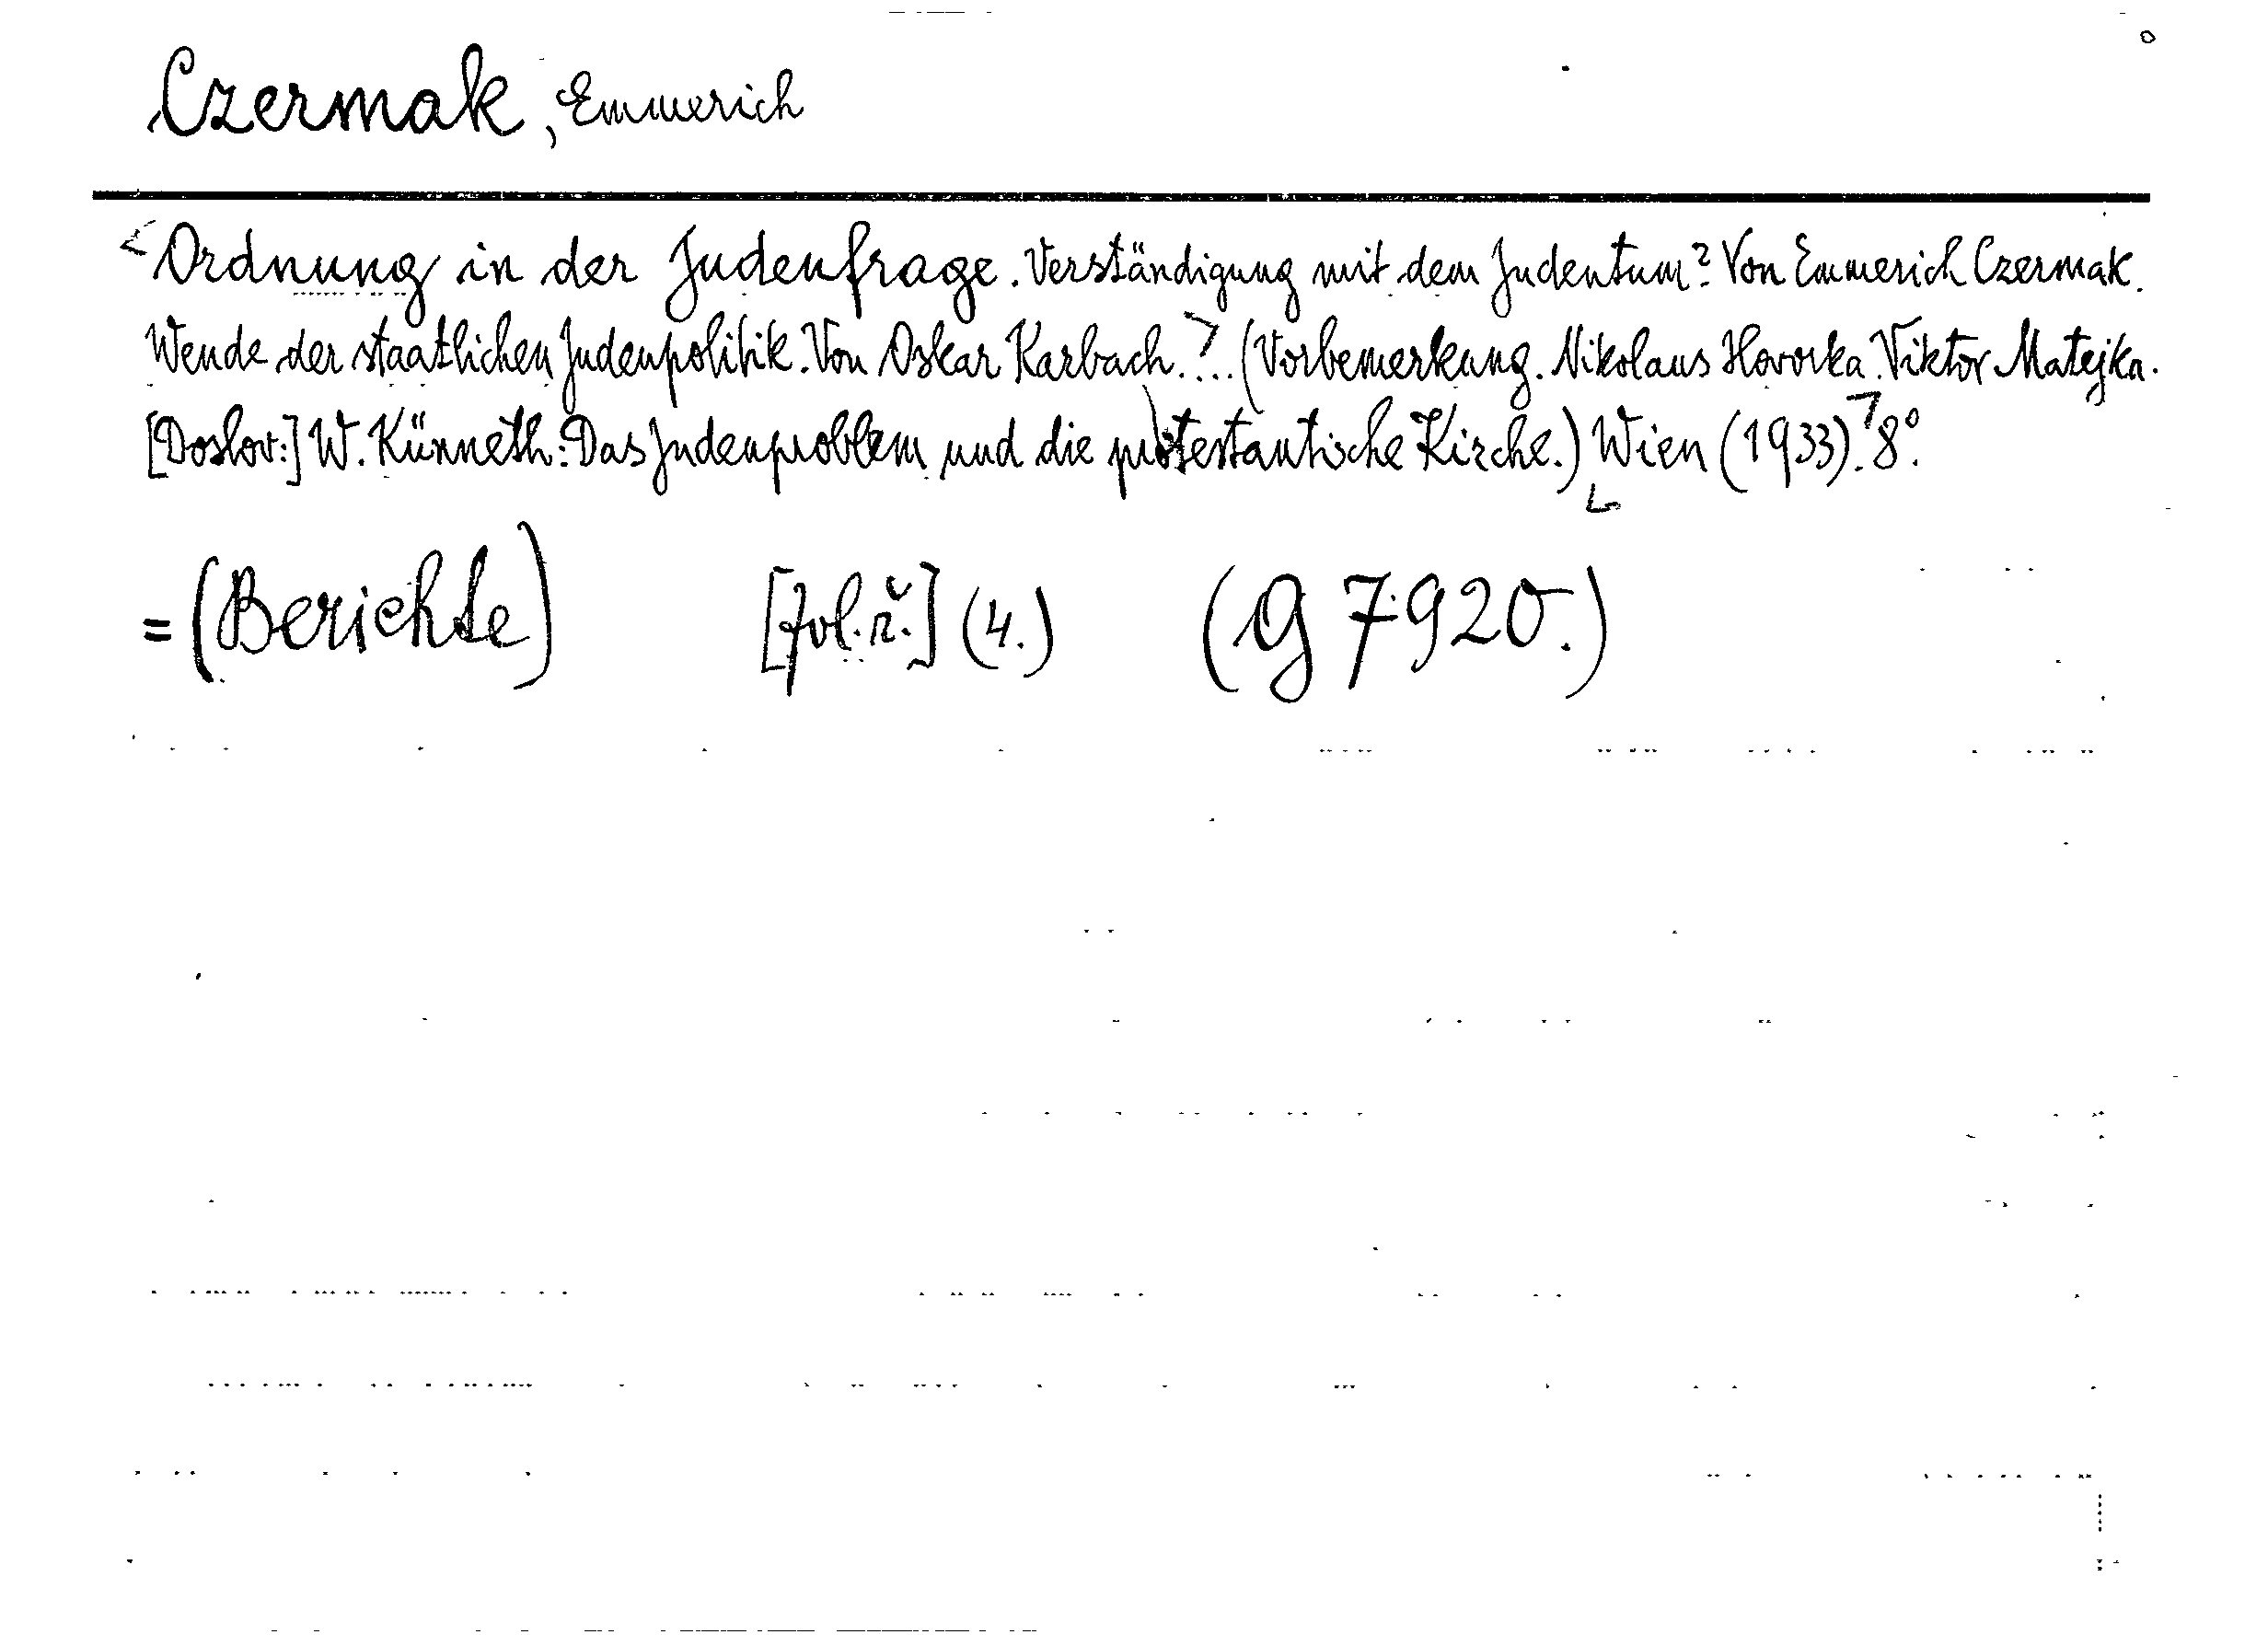 Czermak, Emmerich
Ordnung in der Judenfrage. Verständigung mit dem Judentum? Von Emmerich Czermak.
Wende der staatlichen Judenpolitik. Von Oskar Karbach. ... (Vorbemerkung. Nikolaus Hovorka. Viktor Matejka.
[Doslov:] W. Künneth: Das Judenproblem und die protestantische Kirche.) Wien (1933). 8°.
= (Berichte) [fol. ř.] (4.) (G 7920.)